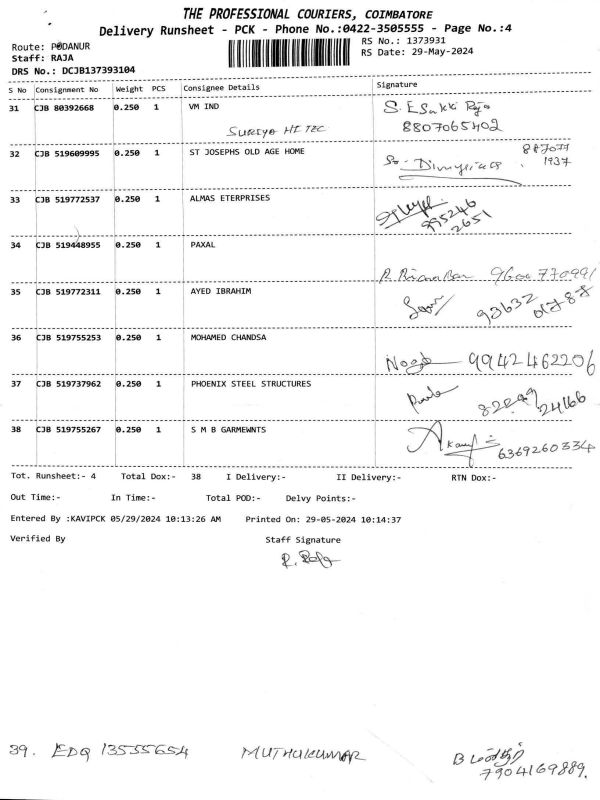 THE PROFESSIONAL COURIERS, COIMBATORE
Delivery Runsheet - PCK - Phone No.:0422-3505555 - Page No.:4
Route: PODANUR
RS No.: 1373931
Staff: RAJA
RS Date: 29-May-2024
DRS No.: DCJB137393104
S No Consignment No Weight PCS Consignee Details Signature
31 CJB 80392668 0.250 1 VM IND S. Esakki Raja
SURIYA HI TEC 8807065402
32 CJB 519609995 0.250 1 ST JOSEPHS OLD AGE HOME
33 CJB 519772537 0.250 1 ALMAS ETERPRISES
995246
2651
34 CJB 519448955 0.250 1 PAXAL
35 CJB 519772311 0.250 1 AYED IBRAHIM
93632
36 CJB 519755253 0.250 1 MOHAMED CHANDSA
9942462206
37 CJB 519737962 0.250 1 PHOENIX STEEL STRUCTURES
24166
38 CJB 519755267 0.250 1 S M B GARMEWNTS
6369260334
Tot. Runsheet:- 4 Total Dox:- 38 I Delivery:- II Delivery:- RTN Dox:-
Out Time:- In Time:- Total POD:- Delvy Points:-
Entered By :KAVIPCK 05/29/2024 10:13:26 AM Printed On: 29-05-2024 10:14:37
Verified By Staff Signature
R. Raja
39. EDQ 13555654 MUTHUKUMAR
7904169889.